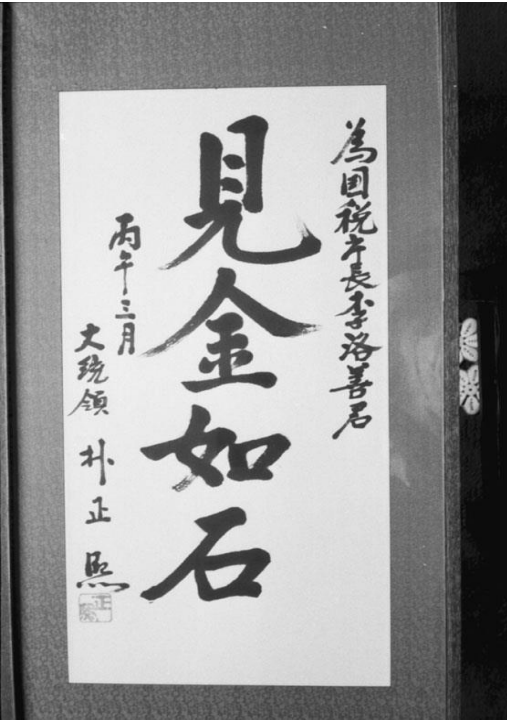 為国税庁長李洛善君
見金如石
丙午三月
大統領 朴正熙